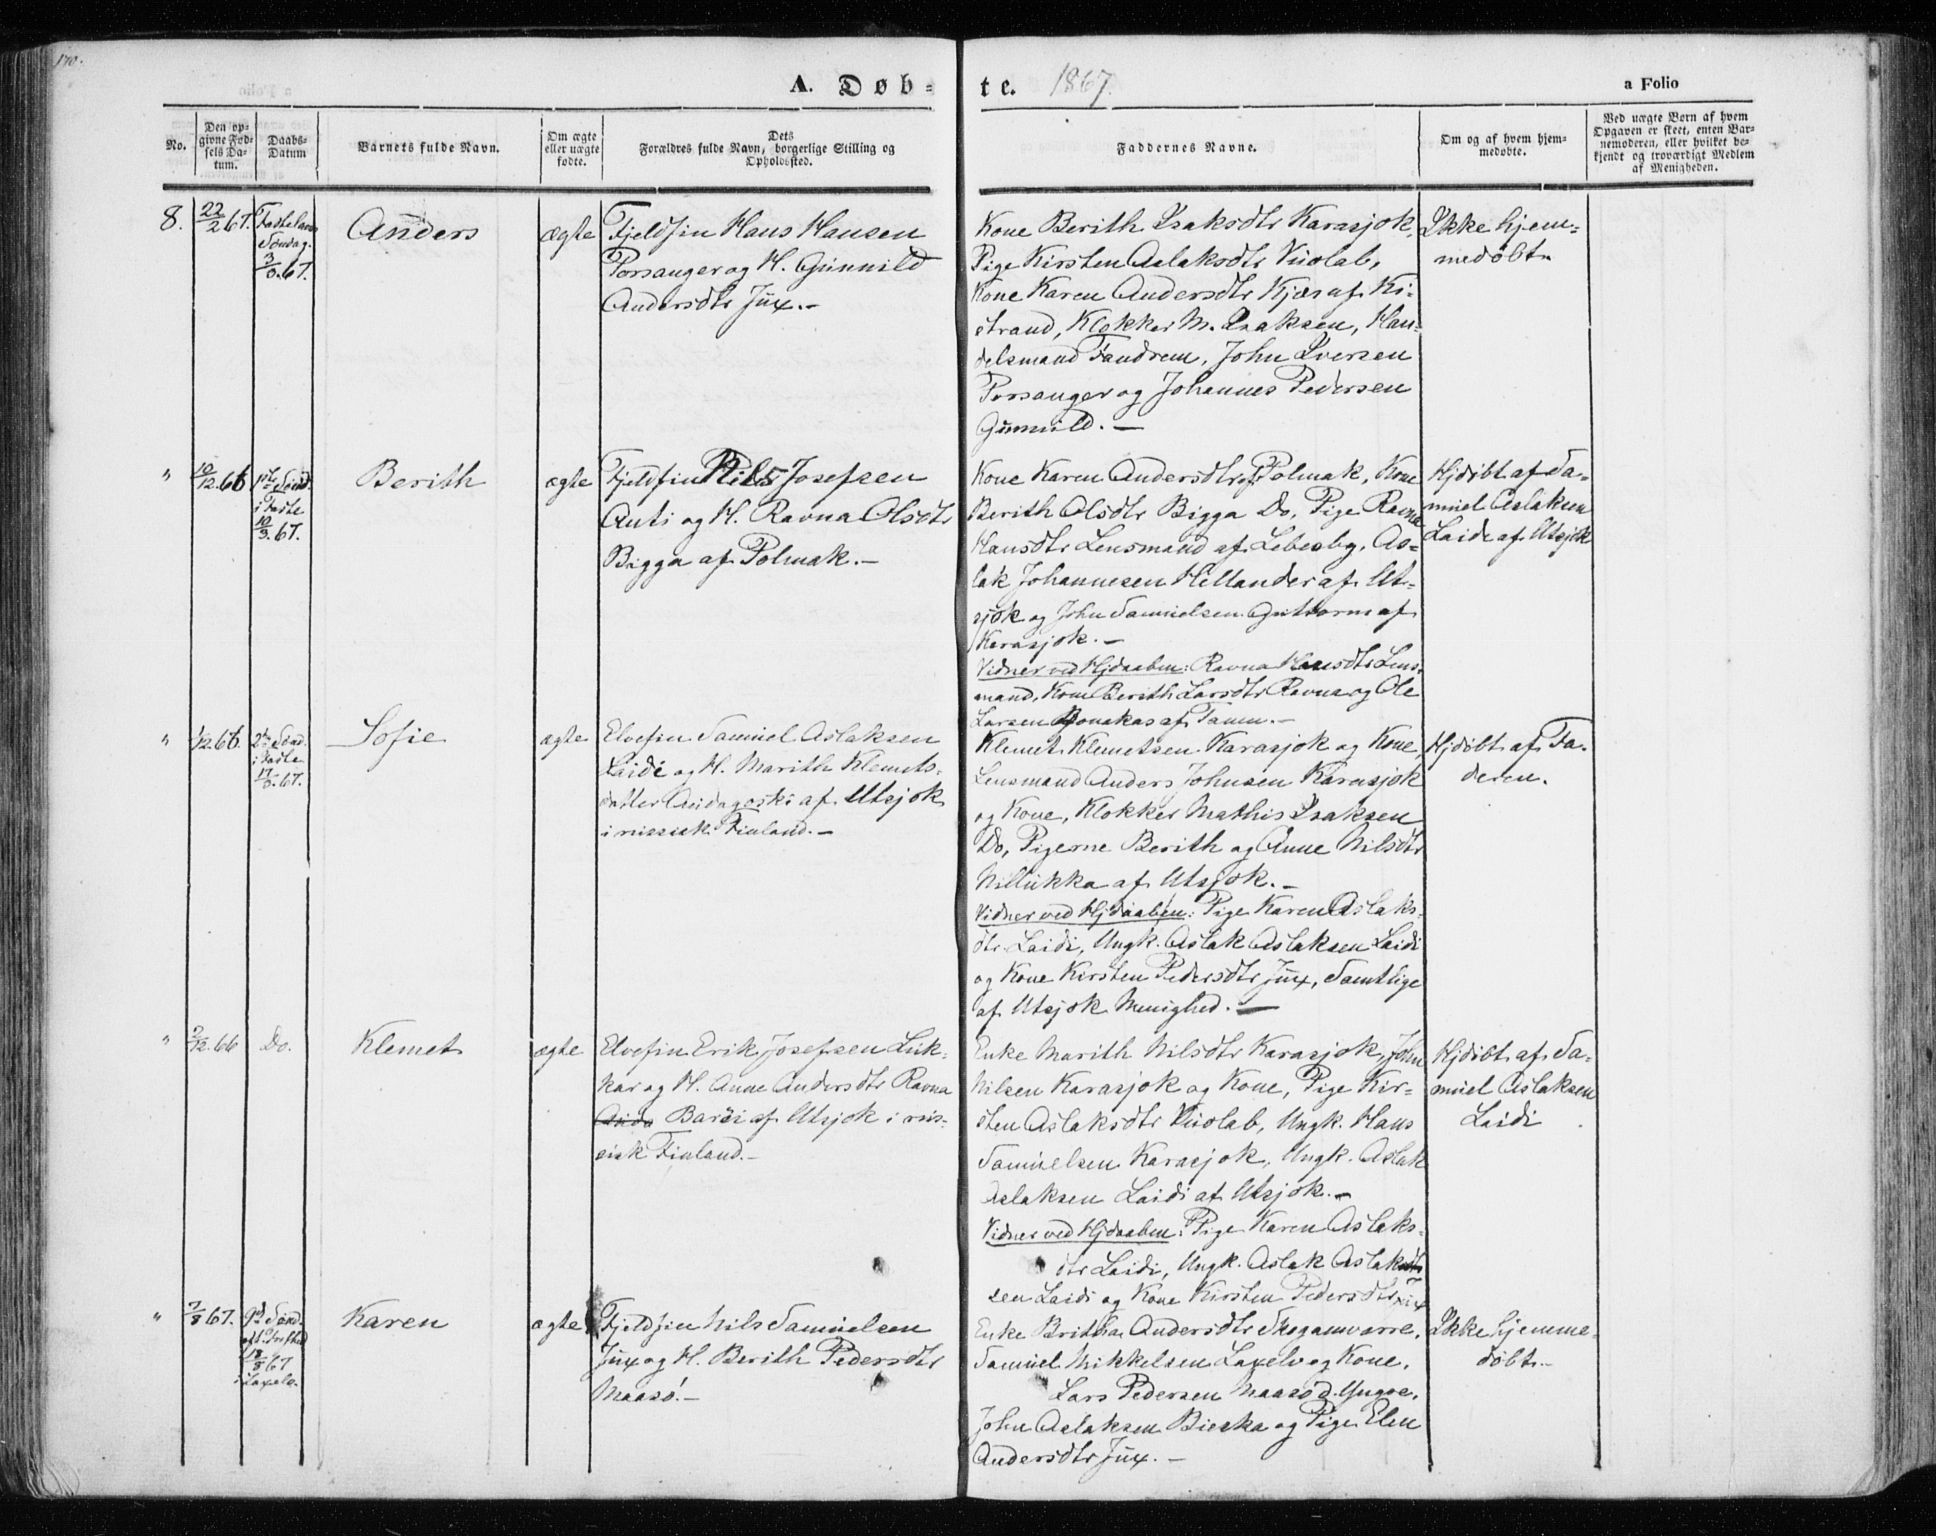 170.
A. Døb=
te. 1867.
a Folio
No.
Den op=
givne Fød=
sels Da=
tum.
Daabs=
Datum
Barnets fulde Navn.
Om ægte
eller uægte
fødte.
Dets
Forældres fulde Navn, borgerlige Stilling og
Opholdssted.
Faddernes Navne.
Om og af hvem hjem=
medøbte.
Ved uægte Børn af hvem
Opgaven er skeet, enten Bar=
nemoderen, eller hvilket be=
kjendt og troværdigt Medlem
af Menigheden.
8.
22/2 67.
Fastelavns
Søndag.
3/3. 67.
Anders
ægte
Fjeldfin Hans Hansen
Porsanger og H. Gunnild
Andersdtr Jux.-
Kone Berith Isaksdtr Karasjok,
Pige Kirsten Aslaksdtr Vuolab,
Kone Karen Andersdtr Kjær af Ki-
strand, Klokker M. Isaksen, Han-
delsmand Fandrem, John Iversen
Porsanger og Johannes Pedersen
Gunnild.-
Ikke hjem=
medøbt.
"
10/12. 66
1ste Sønd.
i Faste
10/3. 67.
Berith
ægte
Fjeldfin Nils Josefsen
Anti og H. Ravna Olsdtr
Bigga af Polmak.-
Kone Karen Andersdtr af Polmak, Kone
Berith Olsdtr Bigga Do, Pige Ravna
Hansdtr Lensmand af Lebesby, As-
lak Johannesen Hellander af Ut-
sjok og John Samuelsen Guttorm af
Karasjok.-
Vidner ved Hjdaaben: Ravna Hansdtr Lens-
mand, Kone Berith Larsdtr Ravna og Ole
Larsen Bonakas af Tanen.-
Hjdöbt af Sa-
muel Aslaksen
Laidi af Utsjok
"
1/12. 66.
2den Sønd.
i Faste
17/3. 67.
Sofie
ægte
Elvefin Samuel Aslaksen
Laidi og H. Marith Klemets-
datter Andagoski af Utsjok
i russisk Finland.-
Klemet Klemetsen Karasjok og Kone,
Lensmand Anders Johnsen Karasjok
og Kone, Klokker Mathis Isaksen
Do, Pigerne Berith og Anne Nilsdtr
Nillukka af Utsjok.-
Vidner ved Hjdaaben: Pige Karen Aslaks-
dtr Laidi, Ungk. Aslak Aslaksen Laidi
og Kone Kirsten Pedersdtr Jux, Samtlige
af Utsjok Menighed.-
Hjdöbt af Fa-
deren.
"
2/12. 66
Do.
Klemet
ægte
Elvefin Erik Josefsen Luk-
kar og H. Anne Andersdtr Ravna
Barsi af Utsjok i rus-
sisk Finland.-
Enke Marith Nilsdtr Karasjok, John
Nilsen Karasjok og Kone, Pige Kir-
sten Aslaksdtr Vuolab, Ungk. Hans
Samuelsen Karasjok, Ungk. Aslak
Aslaksen Laidi af Utsjok.-
Vidner ved Hjdaaben: Pige Karen Aslaks-
dtr Laidi, Ungk. Aslak Aslak
sen Laidi og Kone Kirsten Pedersdtr Jux
Hjdöbt af Sa-
muel Aslaksen
Laidi
"
7/8 67.
9d Sønd.
eft. Trefted
18/8 67
i Laxelv.
Karen
ægte
Fjeldfin Nils Samuelsen
Jux og H. Berith Pedersdtr
Maasø.-
Enke Britha Andersdtr Skoganvarre,
Samuel Mikkelsen Laxelv og Kone,
Lars Pedersen Maasø d. Yngre,
John Aslaksen Bieska og Pige Elen
Andersdtr Jux.-
Ikke hjemme-
døbt.-